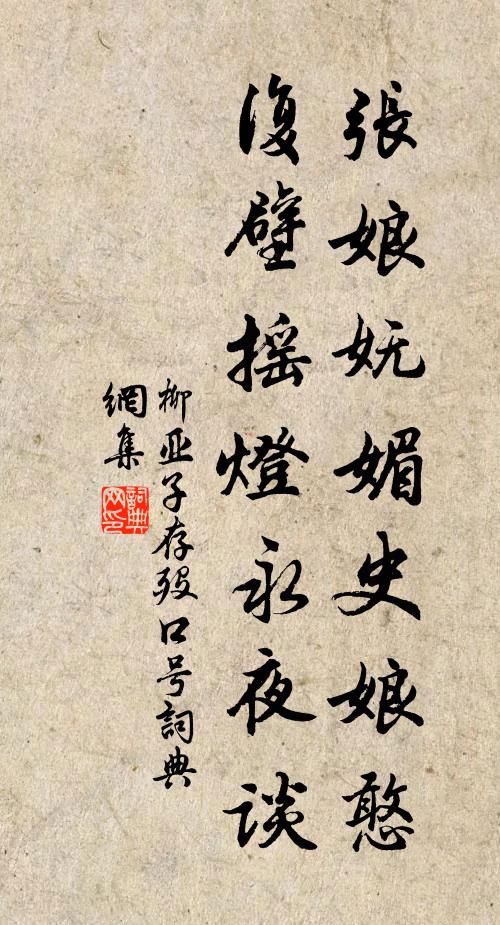 張娘妩媚史娘憨
復壁摇燈永夜谈
柳亚子存殁口号詞典
網集
詞典网印